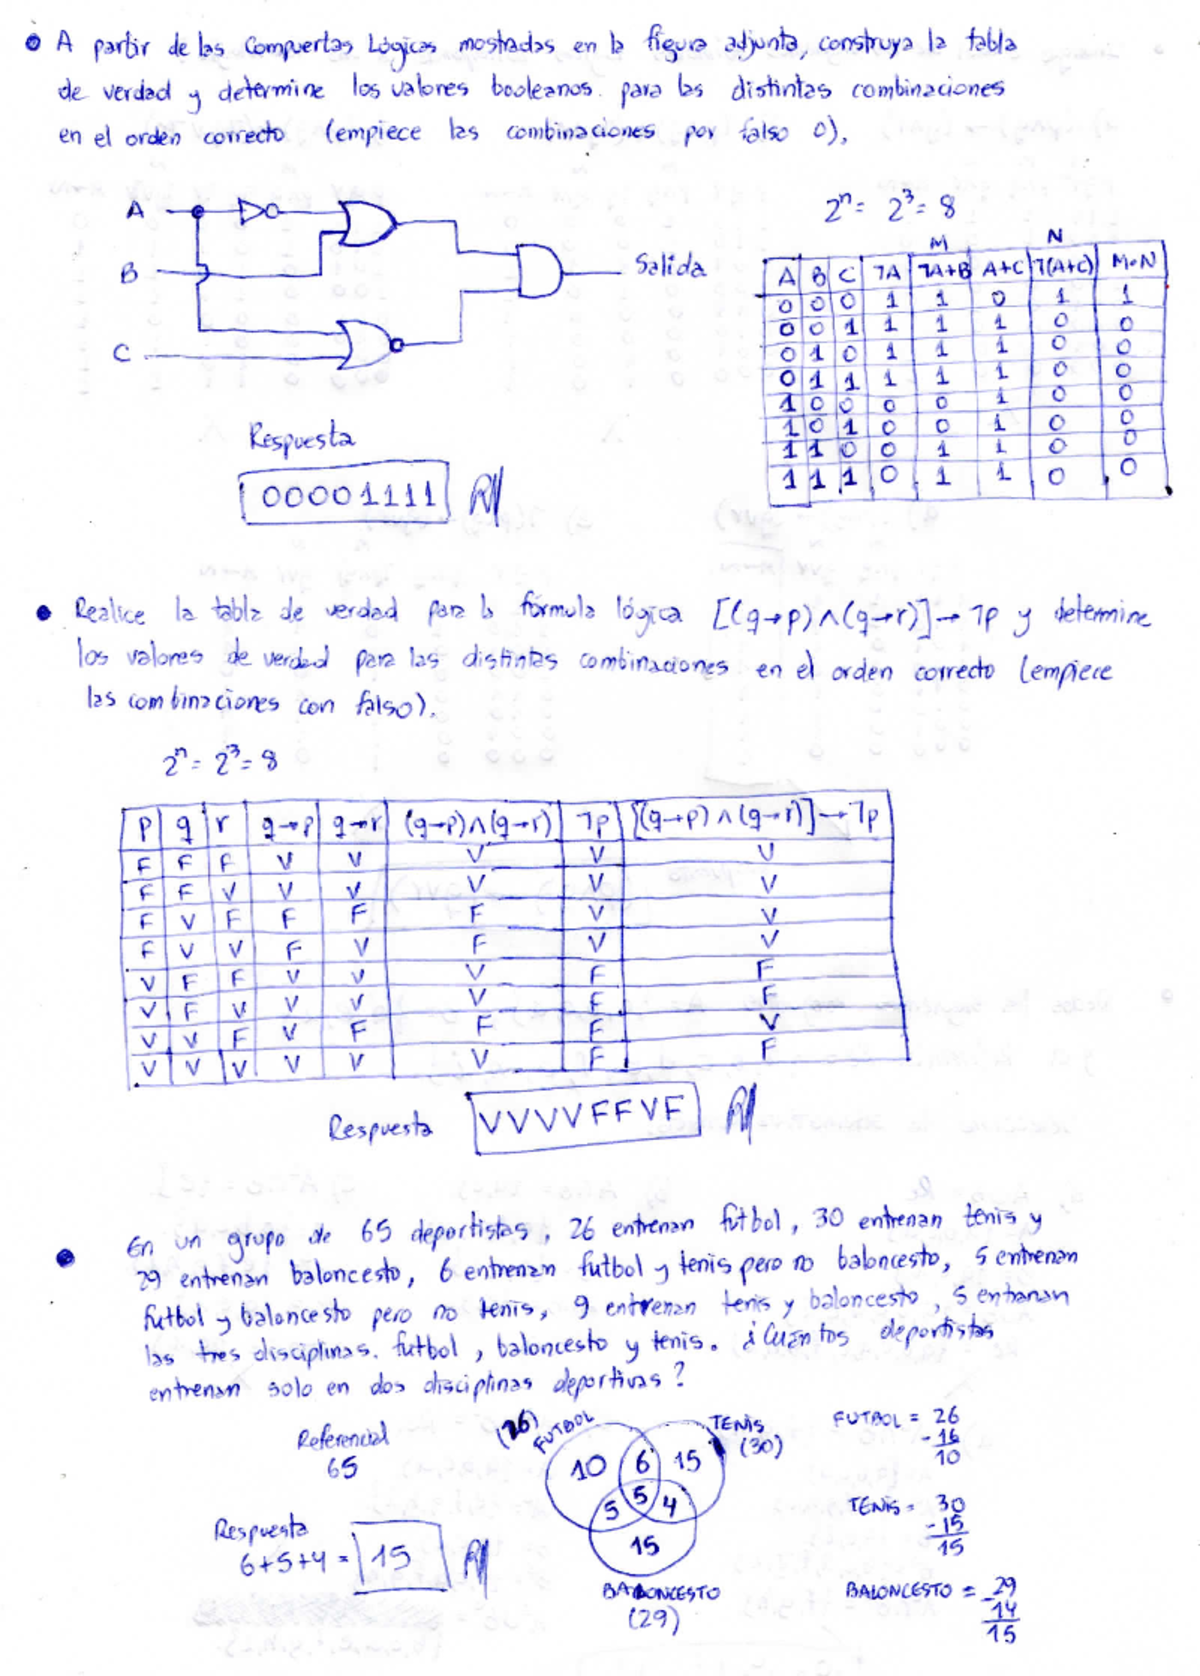 A partir de las Compuertas Lógicas mostradas en la figura adjunta, construya la tabla
de verdad y determine los valores booleanos. para las distintas combinaciones
en el orden correcto (empiece las combinaciones por falso 0),
2ⁿ = 2³ = 8
A
B
C
Salida
M N
A B C ¬A ¬A+B A+C ¬(A+C) M·N
0 0 0 1 1 0 1 1
0 0 1 1 1 1 0 0
0 1 0 1 1 1 0 0
0 1 1 1 1 1 0 0
1 0 0 0 0 1 0 0
1 0 1 0 0 1 0 0
1 1 0 0 1 1 0 0
1 1 1 0 1 1 0 0
Respuesta
00001111 R//
Realice la tabla de verdad para la fórmula lógica [(q→p)∧(q→r)]→¬p y determine
los valores de verdad para las distintas combinaciones en el orden correcto (empiece
las combinaciones con falso).
2ⁿ = 2³ = 8
p q r q→p q→r (q→p)∧(q→r) ¬p [(q→p)∧(q→r)]→¬p
F F F V V V V V
F F V V V V V V
F V F F F F V V
F V V F V F V V
V F F V V V F F
V F V V V V F F
V V F V F F F V
V V V V V V F F
Respuesta VVVVFFVF R//
En un grupo de 65 deportistas, 26 entrenan futbol, 30 entrenan tenis y
29 entrenan baloncesto, 6 entrenan futbol y tenis pero no baloncesto, 5 entrenan
futbol y baloncesto pero no tenis, 9 entrenan tenis y baloncesto, 5 entranan
las tres disciplinas. futbol, baloncesto y tenis. ¿Cuántos deportistas
entrenan solo en dos disciplinas deportivas?
Referencial
65
Respuesta
6+5+4 = 15 R//
(26)
FUTBOL
TENIS
(30)
10 6 15
5 5 4
15
BALONCESTO
(29)
FUTBOL = 26
-16
10
TENIS = 30
-15
15
BALONCESTO = 29
-14
15